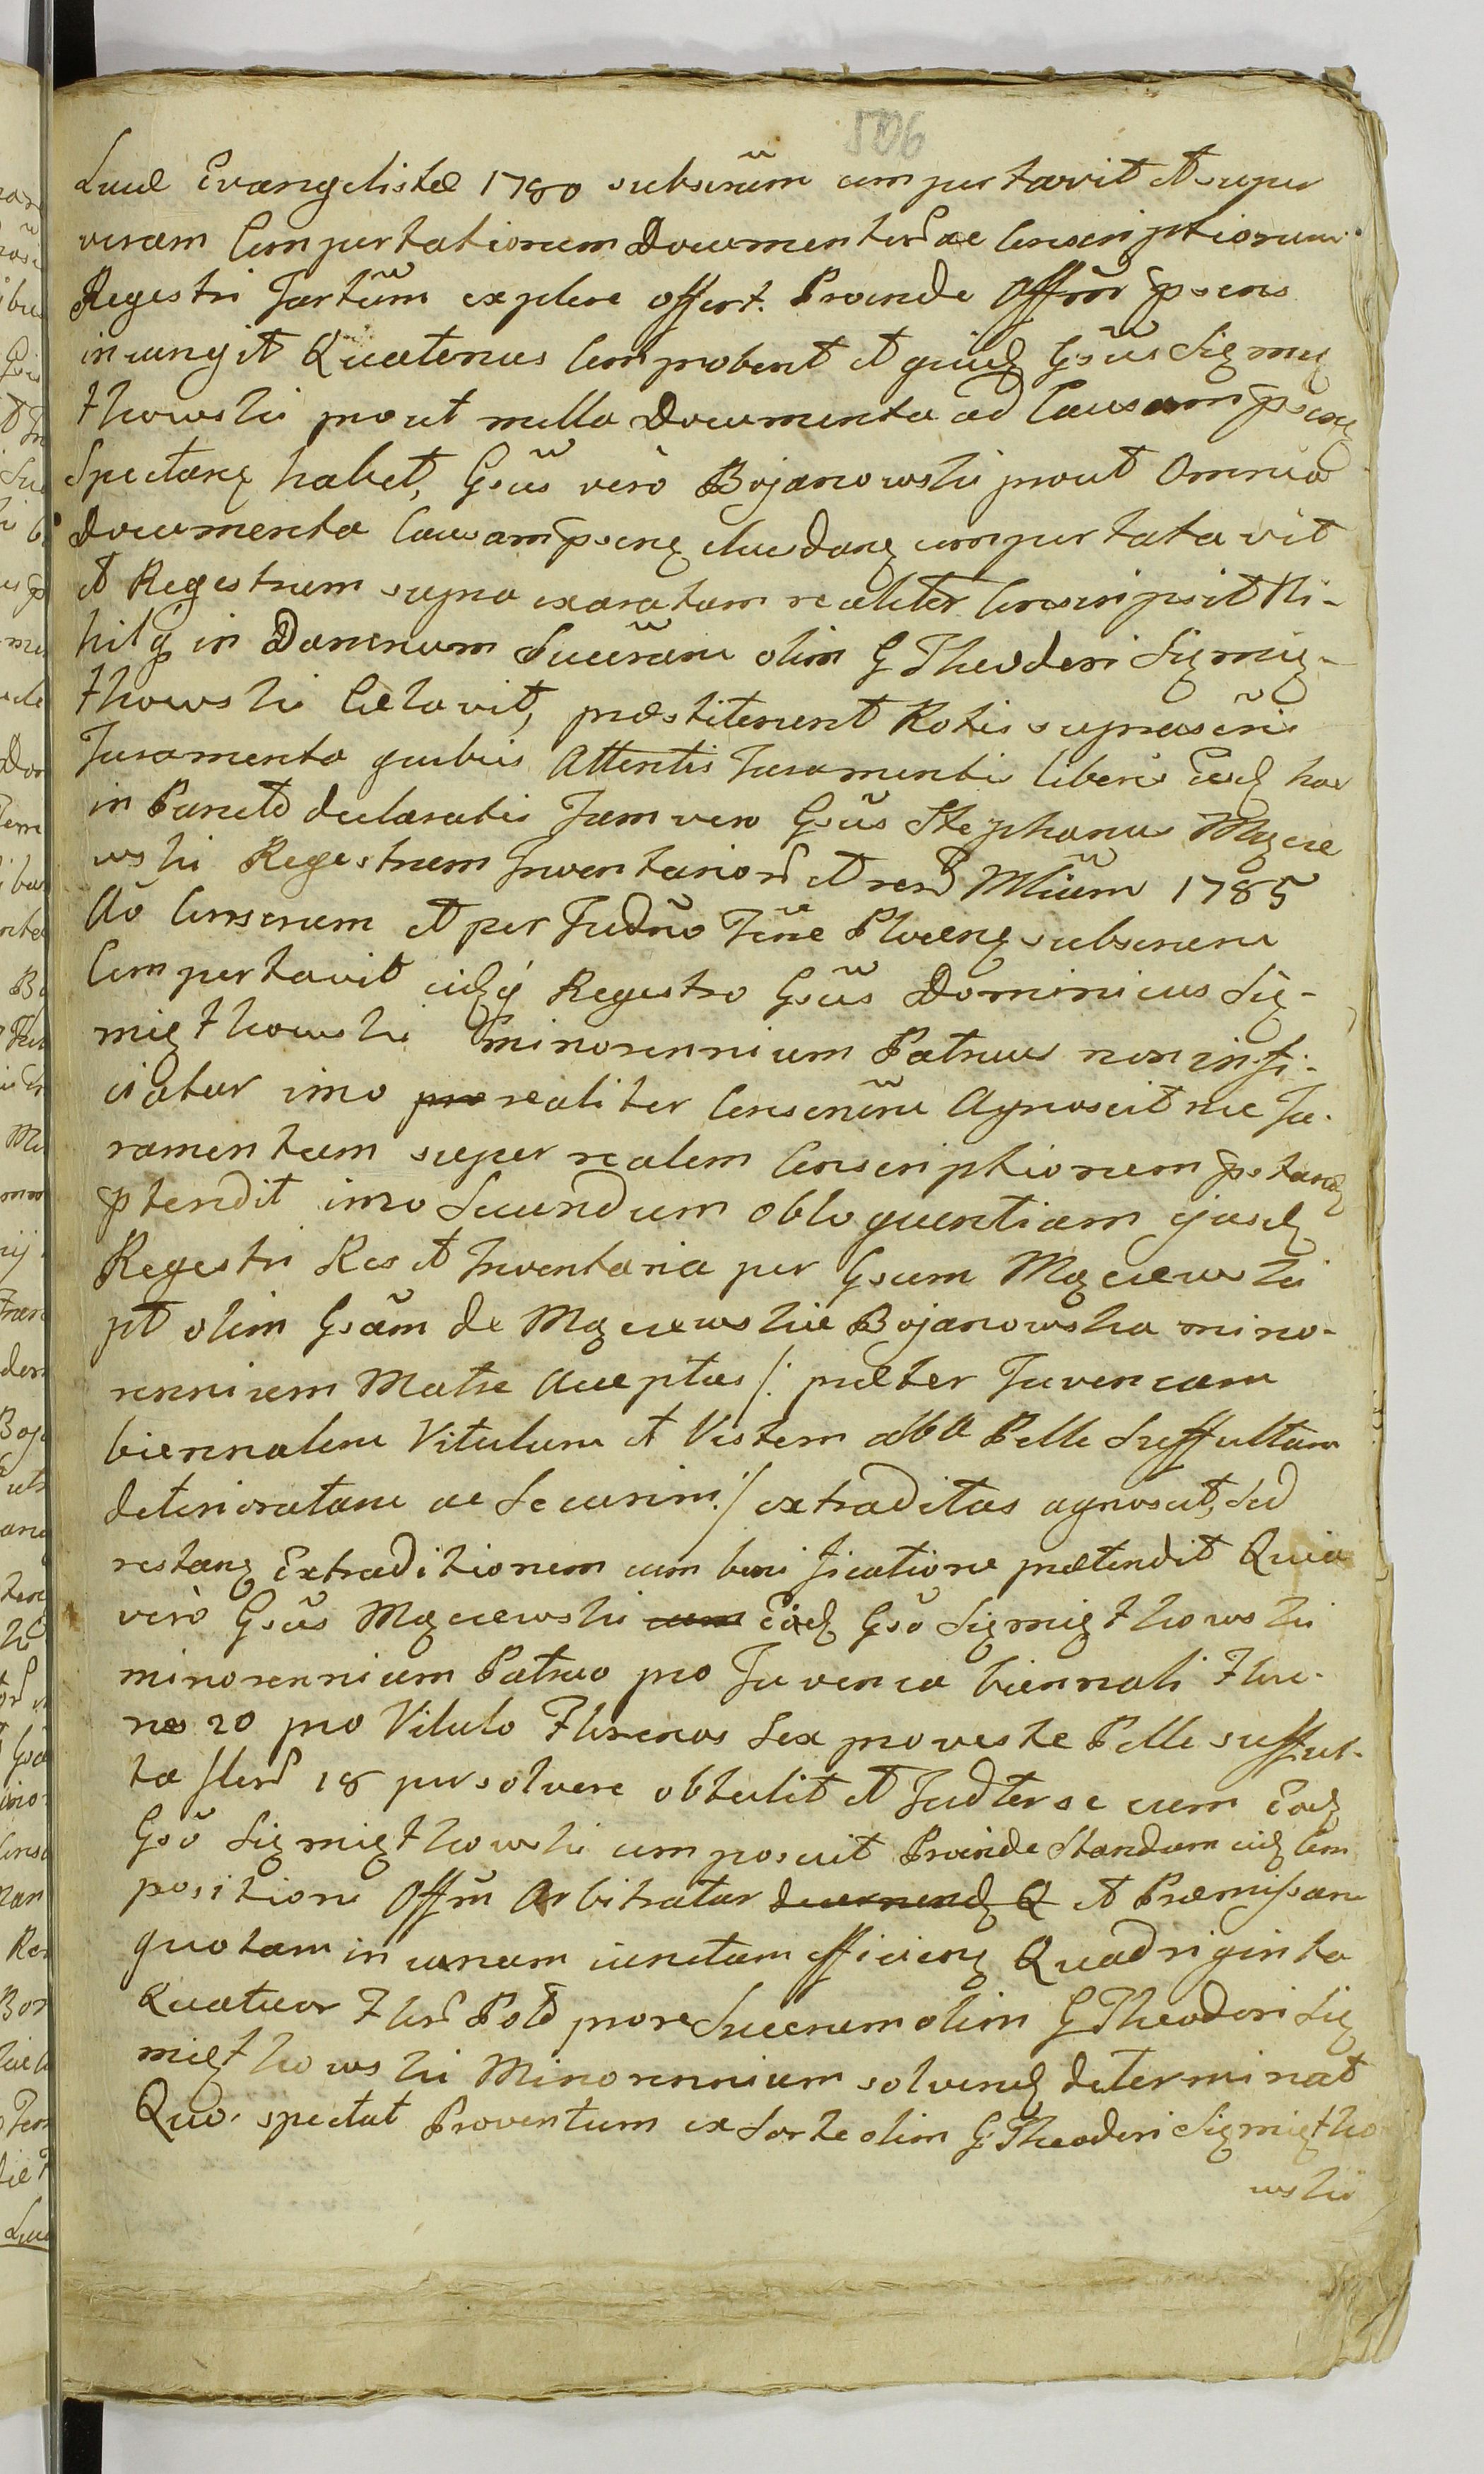 506
Lucæ Evangelistæ 1780 subscrũm comportavit et super
veram Comportationem Documentorũ ac Conscriptionem
Regestri Jurtũm explere offert. Proinde Offm̃ p̃sens
iniungit Quatenus Comprobent et quidẽ Gsũs Siemię
tkowski prout nulla Documenta ad Causam p̃senẽ
Spectanẽ habet, Gsũs verò Bojanowski prout Omnia
Documenta Causam p̃senẽ elucidanẽ comportatavit
et Regestrum supra exaratum realiter Conscripsit Ni-
hilq̃ in Damnum Succrũm olim G Theodori Siemię-
tkowski Celavit, præstiterunt Rotis suprascr̃is
Juramenta quibus Attentis Juramentis liberis Eosdẽ hoc
in Puncto declaratis Jam vero Gsũs Stephanus Mącie
wski Regestrum Inventariorũ et rerũ Mlĩum 1785
Aõ Conscrum et per Judm̃ Trr̃e Plocenẽ subscrum
Comportavit cuiq̃ Regestro Gsũs Dominicus Się-
miętkowski minorennium Patruus non infi-
ciatur imo realiter Conscrũm Agnoscit nec Ju-
ramentum super realem Conscriptionem p̃standẽ
p̃tendit imo Secundum obloquentiam ejusdẽ
Regestri Res et Inventaria per Gsum Mąciewski
pt olim Gsãm de Mąciewskie Bojanowska mino-
rennium Matre Acceptas /: præter Juvencam
biennalem Vitulum et Vestem alba Pelle Suffultam
deterioratam ac Securim :/ extraditas agnoscit, Sed
restanẽ Extraditionem cum bonificatione prætendit Quia
verò Gsũs Mąciewski Eodẽ Gsõ Siemiętkowski
minorennium Patruo pro Juvenca biennali Flore-
nos 20 pro Vitulo Florenos Sex pro veste Pelle sufful-
ta florũ 18 persolvere obtulit et Judter se cum Eodẽ
Gsõ Siemiętkowski composuit Proinde Standum cuidẽ Com
positioni Offm̃ Arbitratur et Præmissam
quotam in unam iunctam efficienẽ Quadriginta
Quatuor Florũ Polõ pro re Succrum olim G Theodori Się
miętkowski Minorennium solvendẽ determinat
Quo. spectat Proventum ex Sorte olim G Theodori Siemiętko
wski